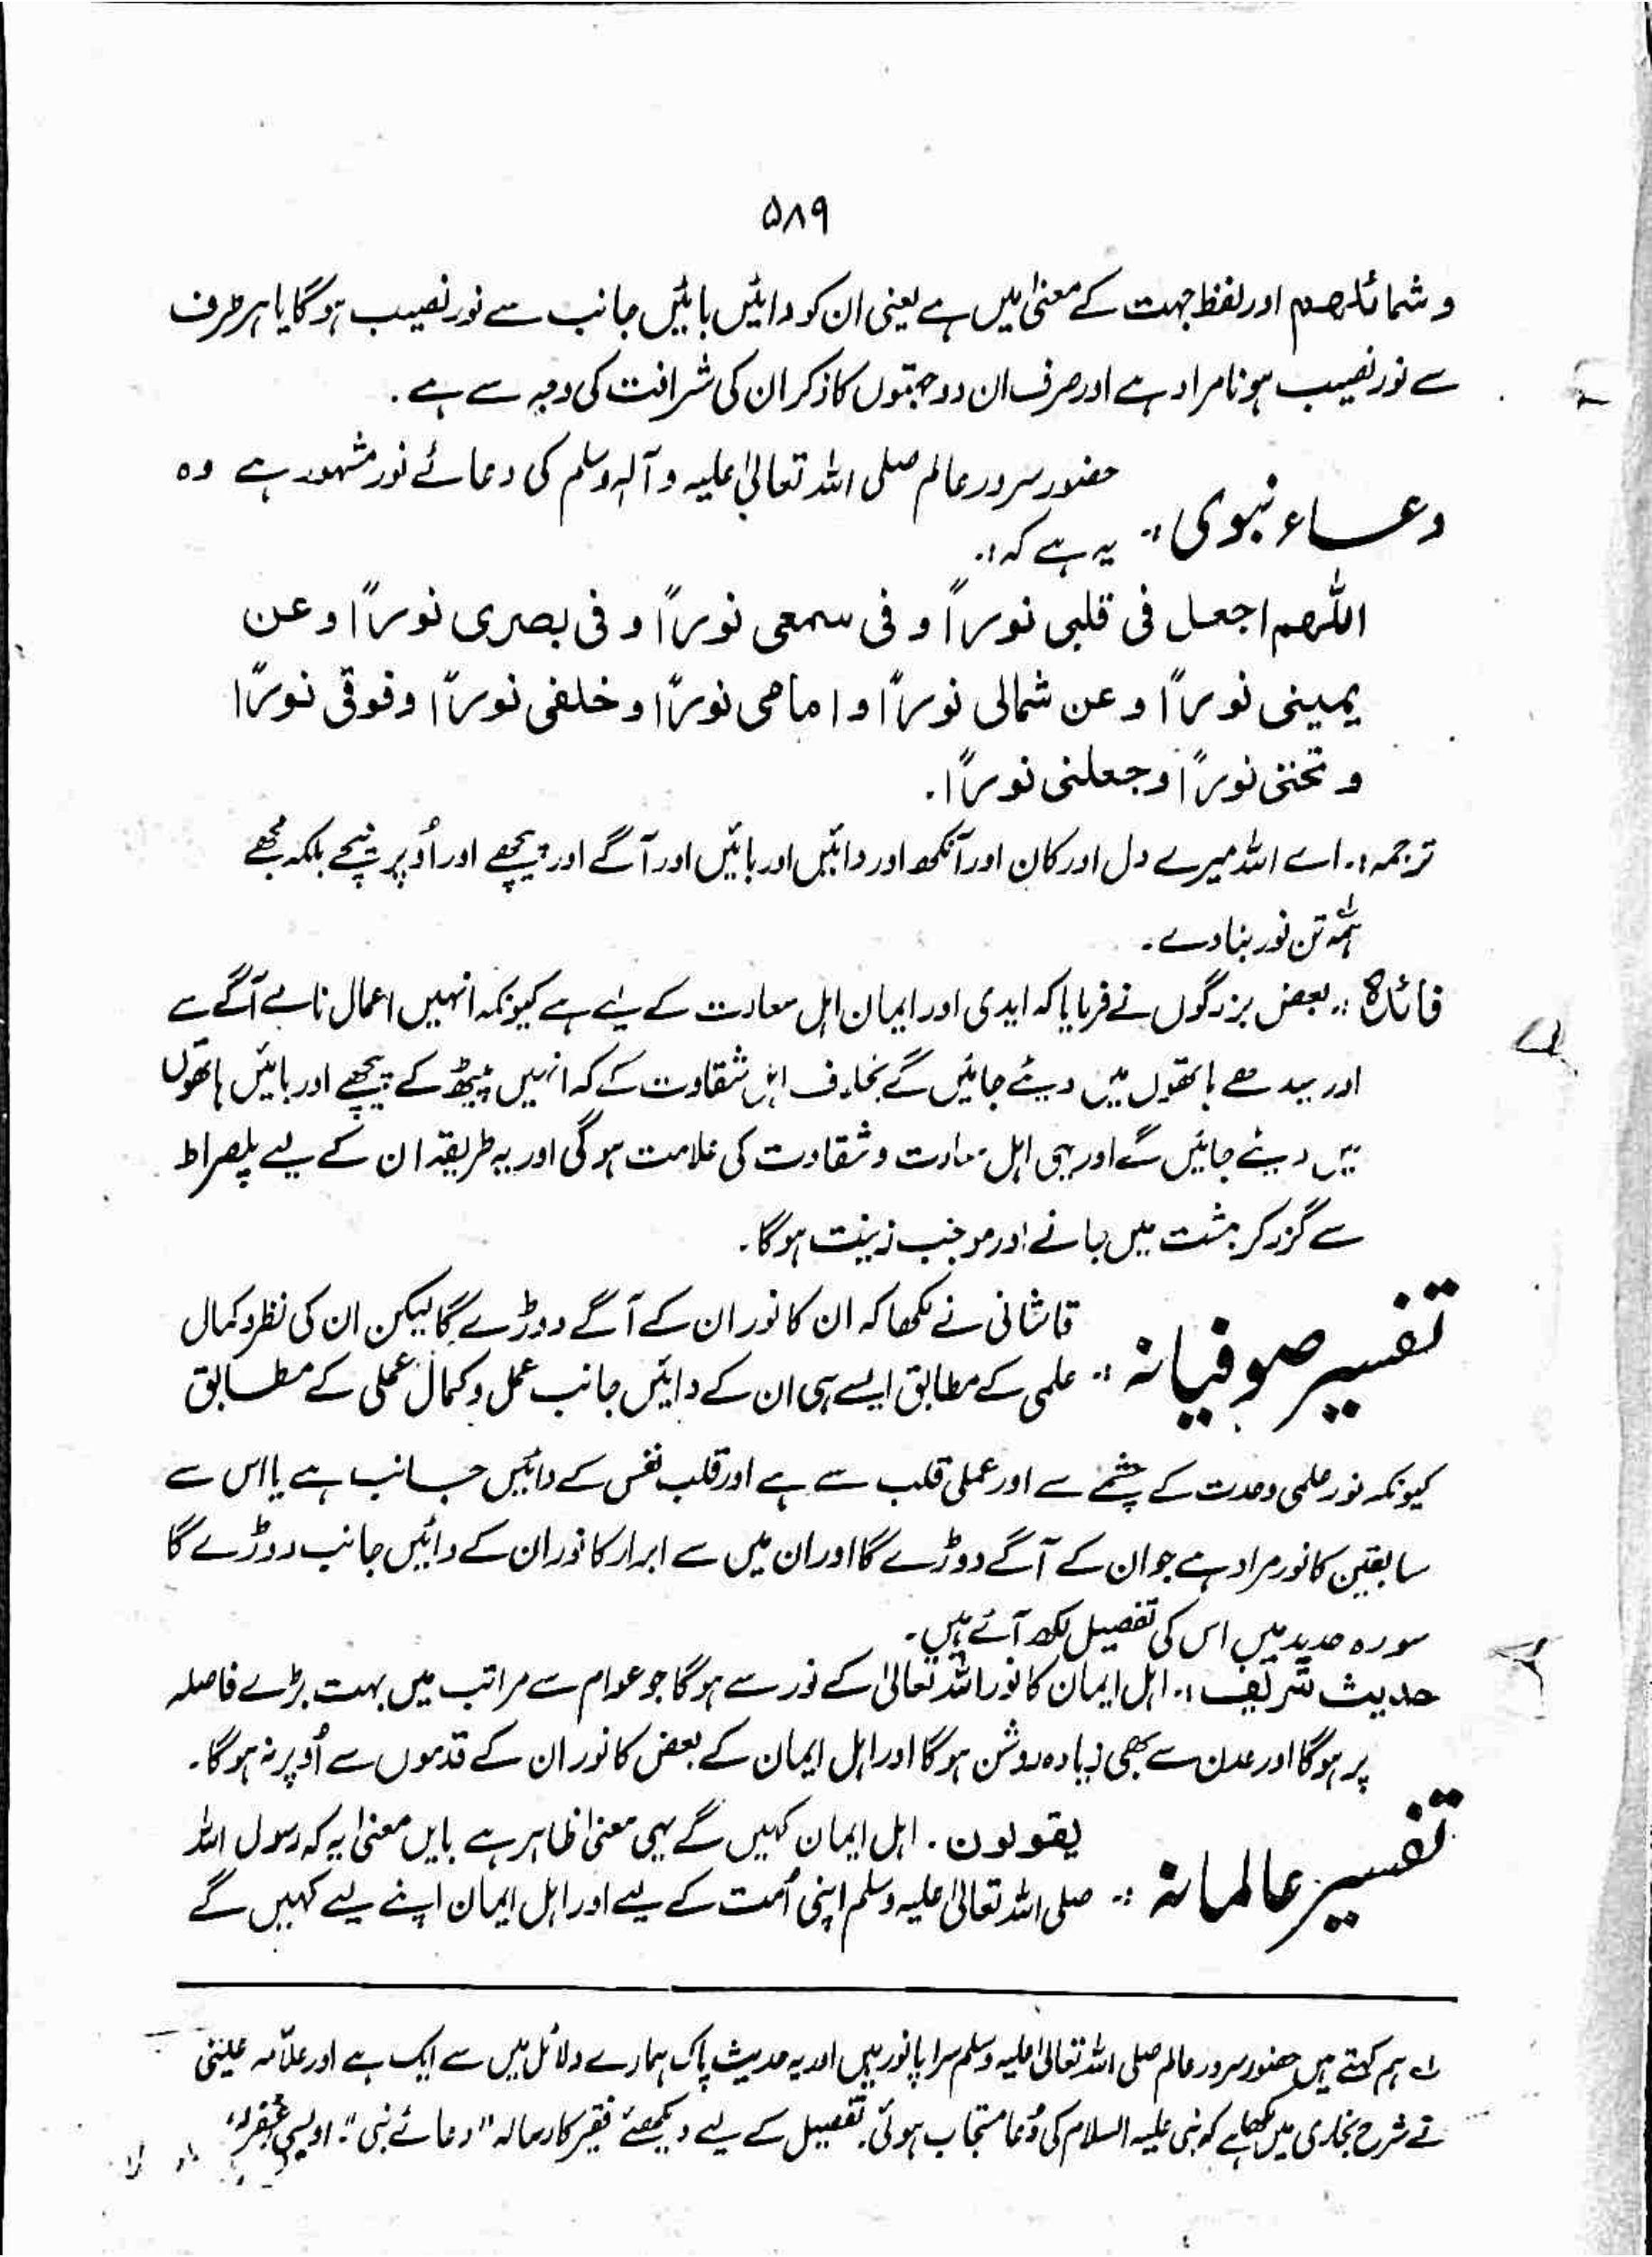 ۵۸۹
و شمائلھم اور لفظ جہت کے معنیٰ میں ہے یعنی ان کو دائیں بائیں جانب سے نور نصیب ہوگا یا ہر طرف
سے نور نصیب ہونا مراد ہے اور صرف ان دو جہتوں کا ذکر ان کی شرافت کی وجہ سے ہے۔
دعاء نبوی :۔ حضور سرور عالم صلی اللہ تعالیٰ علیہ وآلہ وسلم کی دعائے نور مشہور ہے وہ
یہ ہے کہ :۔
اللھم اجعل فی قلبی نوراً و فی سمعی نوراً و فی بصری نوراً و عن
یمینی نوراً و عن شمالی نوراً و امامی نوراً و خلفی نوراً و فوقی نوراً
و تحتی نوراً و جعلنی نوراً۔
ترجمہ :۔ اے اللہ میرے دل اور کان اور آنکھ اور دائیں اور بائیں اور آگے اور پیچھے اور اُوپر نیچے بلکہ مجھے
ہمہ تن نور بنا دے۔
فائدہ :۔ بعض بزرگوں نے فرمایا کہ ایدی اور ایمان اہل سعادت کے لیے ہے کیونکہ انہیں اعمال نامے آگے سے
اور سیدھے ہاتھوں میں دیئے جائیں گے بخلاف اہل شقاوت کے کہ انہیں پیٹھ کے پیچھے اور بائیں ہاتھوں
میں دیئے جائیں گے اور یہی اہل سعادت و شقاوت کی علامت ہوگی اور یہ طریقہ ان کے لیے پلصراط
سے گزر کر بہشت میں جانے اور موجب زینت ہوگا۔
تفسیر صوفیانہ :۔ قاشانی نے لکھا کہ ان کا نور ان کے آگے دوڑے گا لیکن ان کی نظر و کمال
علمی کے مطابق ایسے ہی ان کے دائیں جانب عمل و کمال عملی کے مطابق
کیونکہ نور علمی وحدت کے چشمے سے اور عملی قلب سے ہے اور قلب نفس کے دائیں جانب ہے یا اس سے
سابقین کا نور مراد ہے جو ان کے آگے دوڑے گا اور ان میں سے ابرار کا نور ان کے دائیں جانب دوڑے گا
سورہ حدید میں اس کی تفصیل لکھ آئے ہیں۔
حدیث شریف :۔ اہل ایمان کا نور اللہ تعالیٰ کے نور سے ہوگا جو عوام سے مراتب میں بہت بڑے فاصلہ
پر ہوگا اور عدن سے بھی زیادہ روشن ہوگا اور اہل ایمان کے بعض کا نور ان کے قدموں سے اُوپر نہ ہوگا۔
تفسیر عالمانہ :۔ یقولون ۔ اہل ایمان کہیں گے یہی معنیٰ ظاہر ہے بایں معنیٰ یہ کہ رسول اللہ
صلی اللہ تعالیٰ علیہ وسلم اپنی اُمت کے لیے اور اہل ایمان اپنے لیے کہیں گے
لہ ہم کہتے ہیں حضور سرور عالم صلی اللہ تعالیٰ علیہ وسلم سراپا نور ہیں اور یہ حدیث پاک ہمارے دلائل میں سے ایک ہے اور علامہ عینی
نے شرح بخاری میں لکھا ہے کہ نبی علیہ السلام کی دُعا مستجاب ہوئی۔ تفصیل کے لیے دیکھئے فقیر کا رسالہ "دعائے نبی"۔ اویسی غفرلہٗ